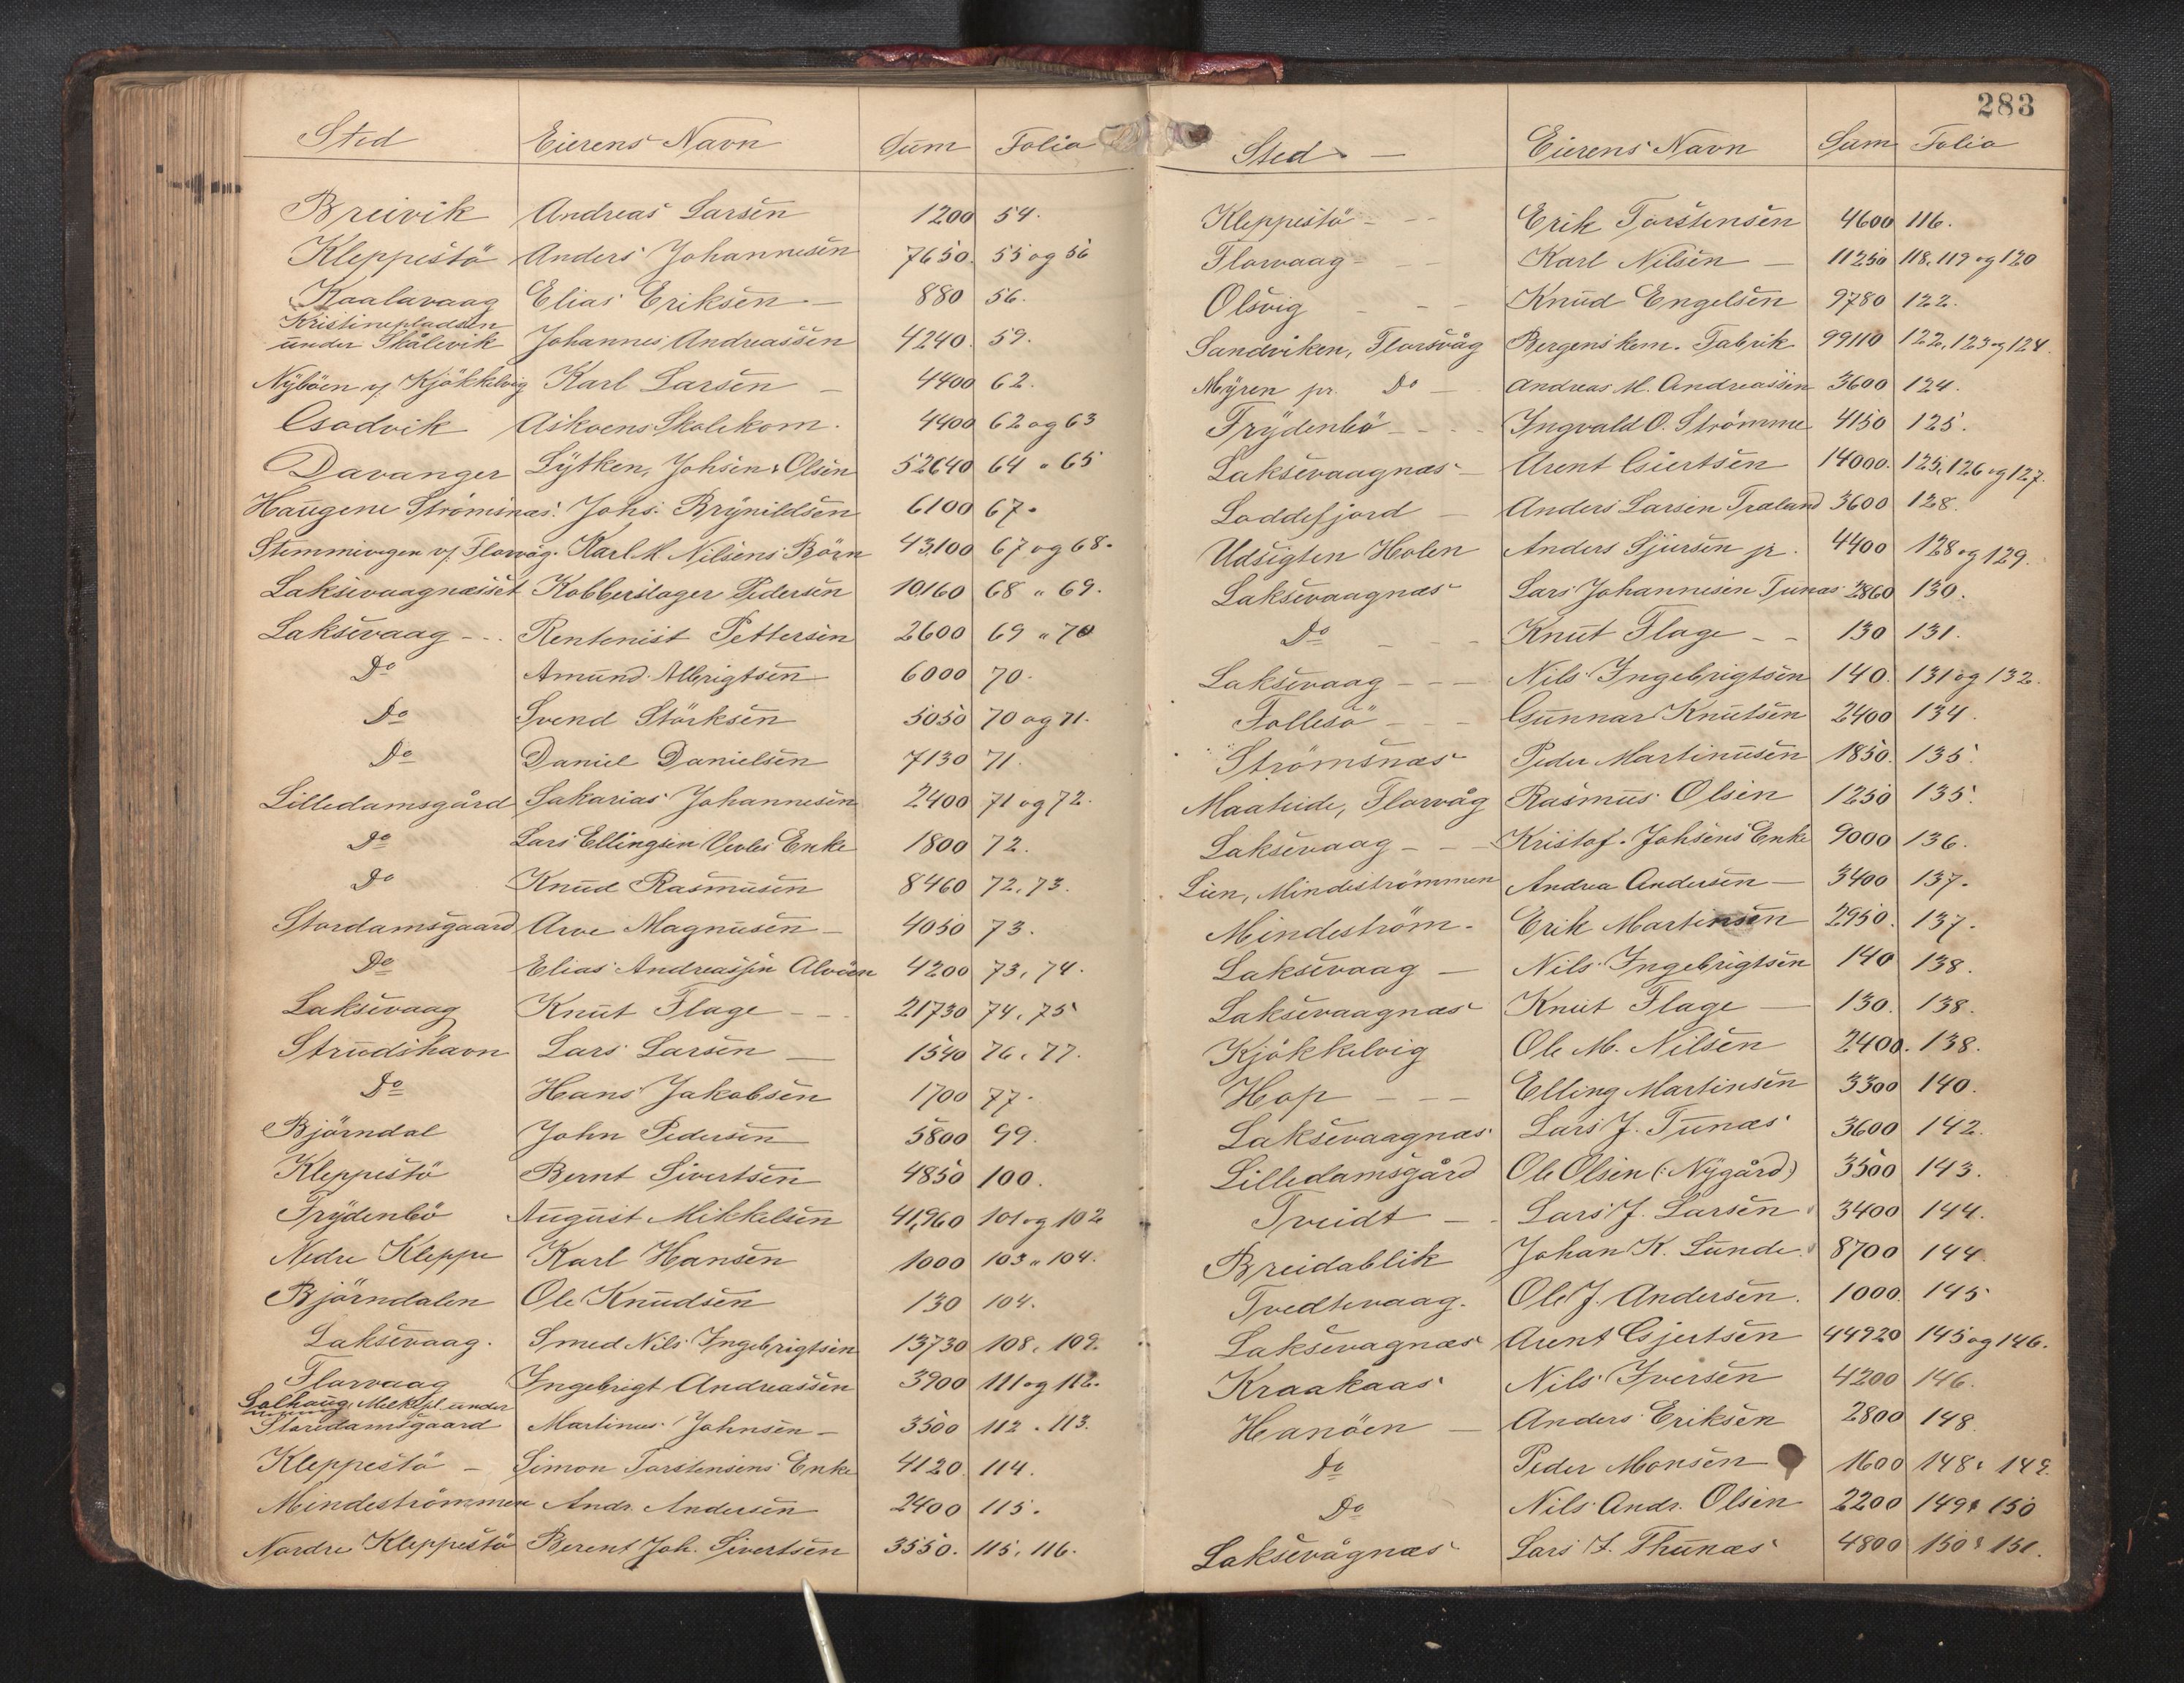 Sted Eierens Navn Sum Folio
Breivik Andreas Larsen 1200 54.
Kleppestö Anders Johannesen 7650. 55 og 56
Kaalavaag Elias Eriksen — 880 56.
Kristinepladsen
under Skålevik Johannes Andreassen 4240. 59.
Nyböen v/ Kjökkelvig Karl Larsen — 4400 62.
Gsodvik Askøens Skolekom. 4400 62 og 63
Davanger Lytken, Johsen & Olsen 52640 64 " 65
Haugene Strömsnæs. Johs. Brynildsen 6100 67.
Stemmivegen v/ Florvåg. Karl M. Nilsens Börn 43,100 67 og 68.
Laksevaagnæsset Kobberslager Pedersen 10160 68 " 69.
Laksevaag - - Rentenist Pettersen 2600 69 " 70
Do Amund Albrigtsen 6000 70.
Do Svend Störksen 5050 70 og 71.
Do Daniel Danielsen 7130 71.
Lilledamsgård Sakarias Johannesen 2400 71 og 72.
Do Lars Ellingsen Enke 1800 72.
Do Knud Rasmusen 8460 72, 73.
Stordamsgaard Arve Magnusen — 4050 73.
Do Elias Andreassen Alvöen 4200 73, 74.
Laksevaag Knut Flage - - 21730 74, 75
Strudshavn Lars Larsen — 1540 76, 77.
Do Hans Jakobsen 1700 77.
Björndal John Pedersen 5800 99.
Kleppestö Bernt Sivertsen 4850 100.
Frydenbö August Mikkelsen 41,960 101 og 102
Nedre Kleppe Karl Hansen 1000 103 " 104.
Björndalen Ole Knudsen 130 104.
Laksevaag. Smed Nils Ingebrigtsen 13730 108, 109.
Florvaag Ingebrigt Andreassen 3900 111 og 112.
Solhaug, under
Storedamsgaard Martinus Johnsen — 3500 112 . 113.
Kleppestö — Simon Torstensens Enke 4120 114.
Mindeströmmen Andr. Andersen 2400 115.
Nordre Kleppestö Berent Joh. Sivertsen 3550. 115, 116.
283
Sted — Eierens Navn Sum Folio
Kleppestö - - Erik Torstensen 4600 116.
Florvaag - - Karl Nilsen — 11250 118, 119 og 120
Olsvig - - Knud Engelsen 9780 122.
Sandviken, Florsvåg Bergens kem. Fabrik 99110 122, 123 og 124.
Myren pr. Do — Andreas M. Andreassen 3600 124.
Frydenbö - - - Ingvald O. Strömme 4150 125.
Laksevaagnæs - Arent Giertsen 14000. 125, 126 og 127.
Loddefjord — Anders Larsen Træland 3600 128.
Udsigten Holen Anders Sjursen jr. 4400 128 og 129.
Laksevaagnæs Lars Johannesen Tunæs 2860 130.
Do - - Knut Flage - - 130 131.
Laksevaag - - - Nils Ingebrigtsen 140. 131 og 132.
Follesö - - Gunnar Knutsen 2400 134.
Strömsnæs Peder Martinusen 1850. 135.
Maaheide, Florvåg Rasmus Olsen 1250 135.
Laksevaag - - - Kristof. Johsens Enke 9000 136.
Lien, Mindeströmmen Andrea Andersen — 3400 137.
Mindeström. Erik Martinsen 2950. 137.
Laksevaag — Nils Ingebrigtsen 140 138.
Laksevaagnæs Knut Flage — 130. 138.
Kjökkelvig Ole M. Nilsen 2400. 138.
Hop - - - Elling Martinsen 3300 140.
Laksevaagnæs Lars J. Tunæs 3600 142.
Lilledamsgård Ole Olsen (: Nygård) 3500 143.
Tveidt — Lars J. Larsen 3400 144.
Breidablik Johan K. Lunde. 8700 144.
Tvedtevaag. Ole J. Andersen. 1000. 145
Laksevagnæs Arent Gjertsen 44920 145 og 146.
Kraakaas Nils Iversen 4200 146.
Hanöen — Anders Eriksen 2800 148.
Do Peder Monsen 1600 148 & 149.
Do Nils Andr. Olsen 2200 149 & 150
Laksevågnæs Lars J. Thunæs 4800 150 & 151.